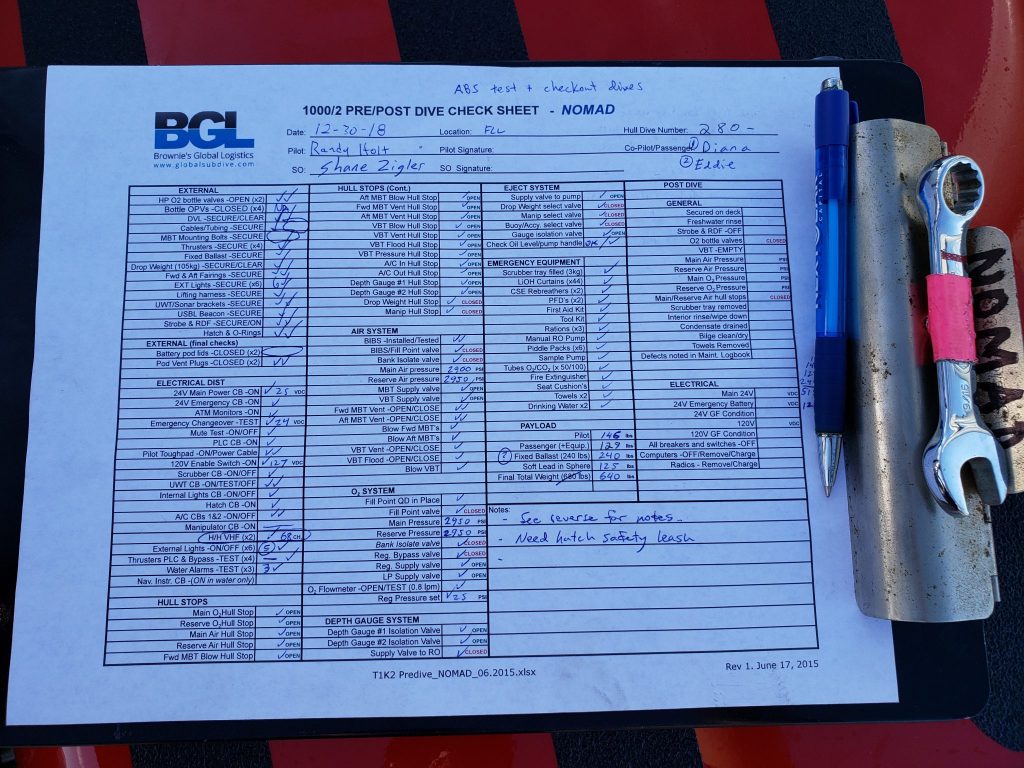 ABS test + checkout dives
BGL
Brownie's Global Logistics
www.globalsubdive.com
1000/2 PRE/POST DIVE CHECK SHEET - NOMAD
Date: 12-30-18 Location: FLL Hull Dive Number: 280-
Pilot: Randy Holt Pilot Signature: Co-Pilot/Passenger: ① Diana
SO: Shane Zigler SO Signature: ② Eddie
EXTERNAL
HP O2 bottle valves -OPEN (x2) ✓✓
Bottle OPVs -CLOSED (x4)
DVL -SECURE/CLEAR
Cables/Tubing -SECURE
MBT Mounting Bolts -SECURE
Thrusters -SECURE (x4)
Fixed Ballast -SECURE
Drop Weight (105kg) -SECURE/CLEAR
Fwd & Aft Fairings -SECURE
EXT Lights -SECURE (x6)
Lifting harness -SECURE
UWT/Sonar brackets -SECURE
USBL Beacon -SECURE
Strobe & RDF -SECURE/ON
Hatch & O-Rings
EXTERNAL (final checks)
Battery pod lids -CLOSED (x2)
Pod Vent Plugs -CLOSED (x2) ✓✓
ELECTRICAL DIST
24V Main Power CB -ON ✓ 25 VDC
24V Emergency CB -ON ✓
ATM Monitors -ON ✓
Emergency Changeover -TEST ✓ 24 VDC
Mute Test -ON/OFF ✓
PLC CB -ON ✓
Pilot Toughpad -ON/Power Cable ✓✓
120V Enable Switch -ON ✓ 127 VDC
Scrubber CB -ON/OFF ✓
UWT CB -ON/TEST/OFF ✓
Internal Lights CB -ON/OFF ✓
Hatch CB -ON ✓
A/C CBs 1&2 -ON/OFF ✓
Manipulator CB -ON
H/H VHF (x2) ✓ 68 CH.
External Lights -ON/OFF (x6) 5 ✓
Thrusters PLC & Bypass -TEST (x4) ✓
Water Alarms -TEST (x3) 3 ✓
Nav. Instr. CB -(ON in water only)
HULL STOPS
Main O2Hull Stop ✓ OPEN
Reserve O2Hull Stop ✓ OPEN
Main Air Hull Stop ✓ OPEN
Reserve Air Hull Stop ✓ OPEN
Fwd MBT Blow Hull Stop ✓ OPEN
HULL STOPS (Cont.)
Aft MBT Blow Hull Stop ✓ OPEN
Fwd MBT Vent Hull Stop ✓ OPEN
Aft MBT Vent Hull Stop ✓ OPEN
VBT Blow Hull Stop ✓ OPEN
VBT Vent Hull Stop ✓ OPEN
VBT Flood Hull Stop ✓ OPEN
VBT Pressure Hull Stop ✓ OPEN
A/C In Hull Stop ✓ OPEN
A/C Out Hull Stop ✓ OPEN
Depth Gauge #1 Hull Stop ✓ OPEN
Depth Gauge #2 Hull Stop ✓ OPEN
Drop Weight Hull Stop ✓ CLOSED
Manip Hull Stop ✓ CLOSED
AIR SYSTEM
BIBS -Installed/Tested ✓✓
BIBS/Fill Point valve ✓ CLOSED
Bank Isolate valve ✓ CLOSED
Main Air pressure 2900 PSI
Reserve Air pressure 2950 PSI
MBT Supply valve ✓ OPEN
VBT Supply valve ✓ OPEN
Fwd MBT Vent -OPEN/CLOSE ✓✓
Aft MBT Vent -OPEN/CLOSE ✓✓
Blow Fwd MBT's ✓
Blow Aft MBT's ✓
VBT Vent -OPEN/CLOSE ✓✓
VBT Flood -OPEN/CLOSE ✓✓
Blow VBT ✓
O2 SYSTEM
Fill Point QD in Place ✓
Fill Point valve ✓ CLOSED
Main Pressure 2950 PSI
Reserve Pressure 2950 PSI
Bank Isolate valve ✓ CLOSED
Reg. Bypass valve ✓ CLOSED
Reg. Supply valve ✓ OPEN
LP Supply valve ✓ OPEN
O2 Flowmeter -OPEN/TEST (0.8 lpm) ✓
Reg Pressure set ✓ 25 PSI
DEPTH GAUGE SYSTEM
Depth Gauge #1 Isolation Valve ✓ OPEN
Depth Gauge #2 Isolation Valve ✓ OPEN
Supply Valve to RO ✓ CLOSED
EJECT SYSTEM
Supply valve to pump ✓ OPEN
Drop Weight select valve ✓ CLOSED
Manip select valve ✓ CLOSED
Buoy/Accy. select valve ✓ CLOSED
Gauge isolation valve ✓ OPEN
Check Oil Level/pump handle OK / ✓
EMERGENCY EQUIPMENT
Scrubber tray filled (3kg) ✓
LiOH Curtains (x44) ✓
CSE Rebreathers (x2) ✓
PFD's (x2) ✓
First Aid Kit ✓
Tool Kit ✓
Rations (x3) ✓
Manual RO Pump ✓
Piddle Packs (x6) ✓
Sample Pump ✓
Tubes O2/CO2 (x 50/100) ✓
Fire Extinguisher ✓
Seat Cushion's ✓
Towels x2 ✓
Drinking Water x2 ✓
PAYLOAD
Pilot 146 lbs
Passenger (+Equip.) 129 lbs
? Fixed Ballast (240 lbs) 240 lbs
Soft Lead in Sphere 125 lbs
Final Total Weight (680 lbs) 640 lbs
POST DIVE
GENERAL
Secured on deck
Freshwater rinse
Strobe & RDF -OFF
O2 bottle valves CLOSED
VBT -EMPTY
Main Air Pressure PSI
Reserve Air Pressure PSI
Main O2 Pressure PSI
Reserve O2 Pressure PSI
Main/Reserve Air hull stops CLOSED
Scrubber tray removed
Interior rinse/wipe down
Condensate drained
Bilge clean/dry
Towels Removed
Defects noted in Maint. Logbook
ELECTRICAL
Main 24V VDC
24V Emergency Battery VDC
24V GF Condition
120V VDC
120V GF Condition
All breakers and switches -OFF
Computers -OFF/Remove/Charge
Radios - Remove/Charge
Notes:
- See reverse for notes.
- Need hatch safety leash
-
T1K2 Predive_NOMAD_06.2015.xlsx
Rev 1. June 17, 2015
NOMAD
9/16